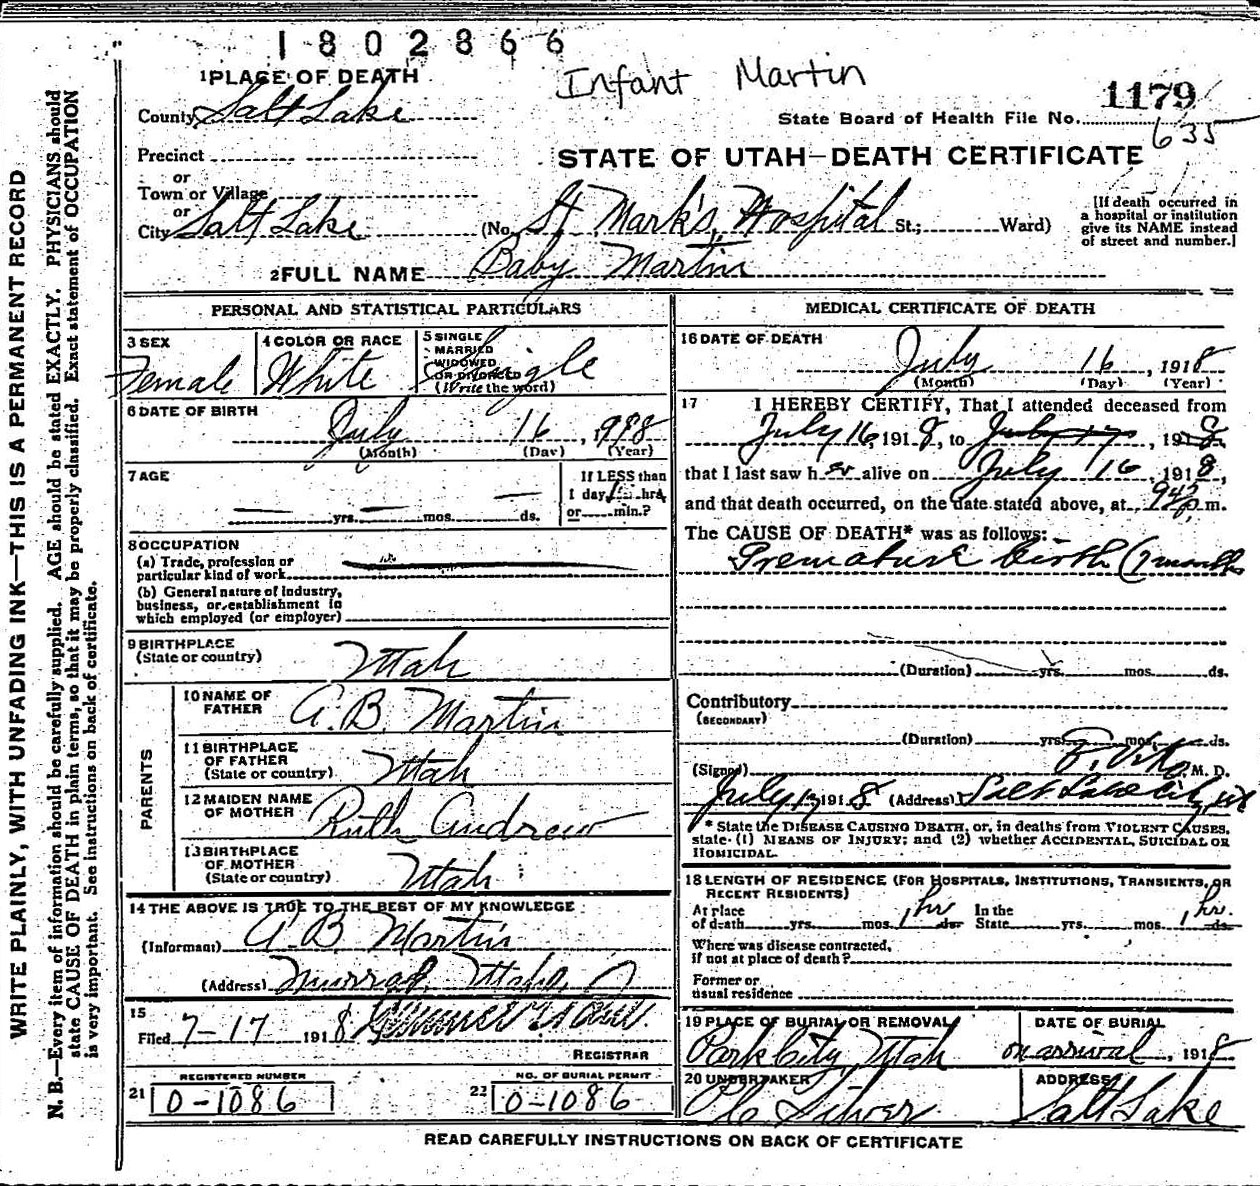 1802866
Infant Martin
1179
State Board of Health File No.
635
1 PLACE OF DEATH
County Salt Lake
Precinct
or
Town or Village
or
City Salt Lake (No. St. Mark's Hospital St.; Ward)
STATE OF UTAH—DEATH CERTIFICATE
[If death occurred in
a hospital or institution
give its NAME instead
of street and number.]
2 FULL NAME Baby Martin
PERSONAL AND STATISTICAL PARTICULARS
3 SEX
Female
4 COLOR OR RACE
White
5 SINGLE
MARRIED
WIDOWED
OR DIVORCED
(Write the word)
Single
6 DATE OF BIRTH
July 16, 1918
(Month) (Day) (Year)
7 AGE
yrs. mos. ds.
If LESS than
1 day, 1 hrs.
or min.?
8 OCCUPATION
(a) Trade, profession or
particular kind of work
(b) General nature of industry,
business, or establishment in
which employed (or employer)
9 BIRTHPLACE
(State or country)
Utah
PARENTS
10 NAME OF
FATHER
A. B. Martin
11 BIRTHPLACE
OF FATHER
(State or country)
Utah
12 MAIDEN NAME
OF MOTHER
Ruth Andrew
13 BIRTHPLACE
OF MOTHER
(State or country)
Utah
14 THE ABOVE IS TRUE TO THE BEST OF MY KNOWLEDGE
(Informant) A B Martin
(Address) Murray, Utah
15
Filed 7-17 1918
REGISTRAR
REGISTERED NUMBER
21 0-1086
NO. OF BURIAL PERMIT
22 0-1086
MEDICAL CERTIFICATE OF DEATH
16 DATE OF DEATH
July 16, 1918
(Month) (Day) (Year)
17 I HEREBY CERTIFY, That I attended deceased from
July 16, 1918, to July 17, 1918,
that I last saw h er alive on July 16 1918,
and that death occurred, on the date stated above, at 9 42 p.m.
The CAUSE OF DEATH* was as follows:
Premature birth (7 months
(Duration) yrs. mos. ds.
Contributory
(SECONDARY)
(Duration) yrs. mos. ds.
(Signed) M. D.
July 17 1918 (Address) Salt Lake City, Ut
* State the DISEASE CAUSING DEATH, or, in deaths from VIOLENT CAUSES,
state (1) MEANS OF INJURY; and (2) whether ACCIDENTAL, SUICIDAL OR
HOMICIDAL.
18 LENGTH OF RESIDENCE (FOR HOSPITALS, INSTITUTIONS, TRANSIENTS, OR
RECENT RESIDENTS)
At place
of death yrs. mos. 1 hr ds.
In the
State yrs. mos. 1 hr. ds.
Where was disease contracted,
if not at place of death?
Former or
usual residence
19 PLACE OF BURIAL OR REMOVAL
Park City, Utah
DATE OF BURIAL
on arrival, 1918
20 UNDERTAKER
Silver
ADDRESS
Salt Lake
READ CAREFULLY INSTRUCTIONS ON BACK OF CERTIFICATE
WRITE PLAINLY, WITH UNFADING INK—THIS IS A PERMANENT RECORD
N. B.—Every item of information should be carefully supplied. AGE should be stated EXACTLY. PHYSICIANS should
state CAUSE OF DEATH in plain terms, so that it may be properly classified. Exact statement of OCCUPATION
is very important. See instructions on back of certificate.